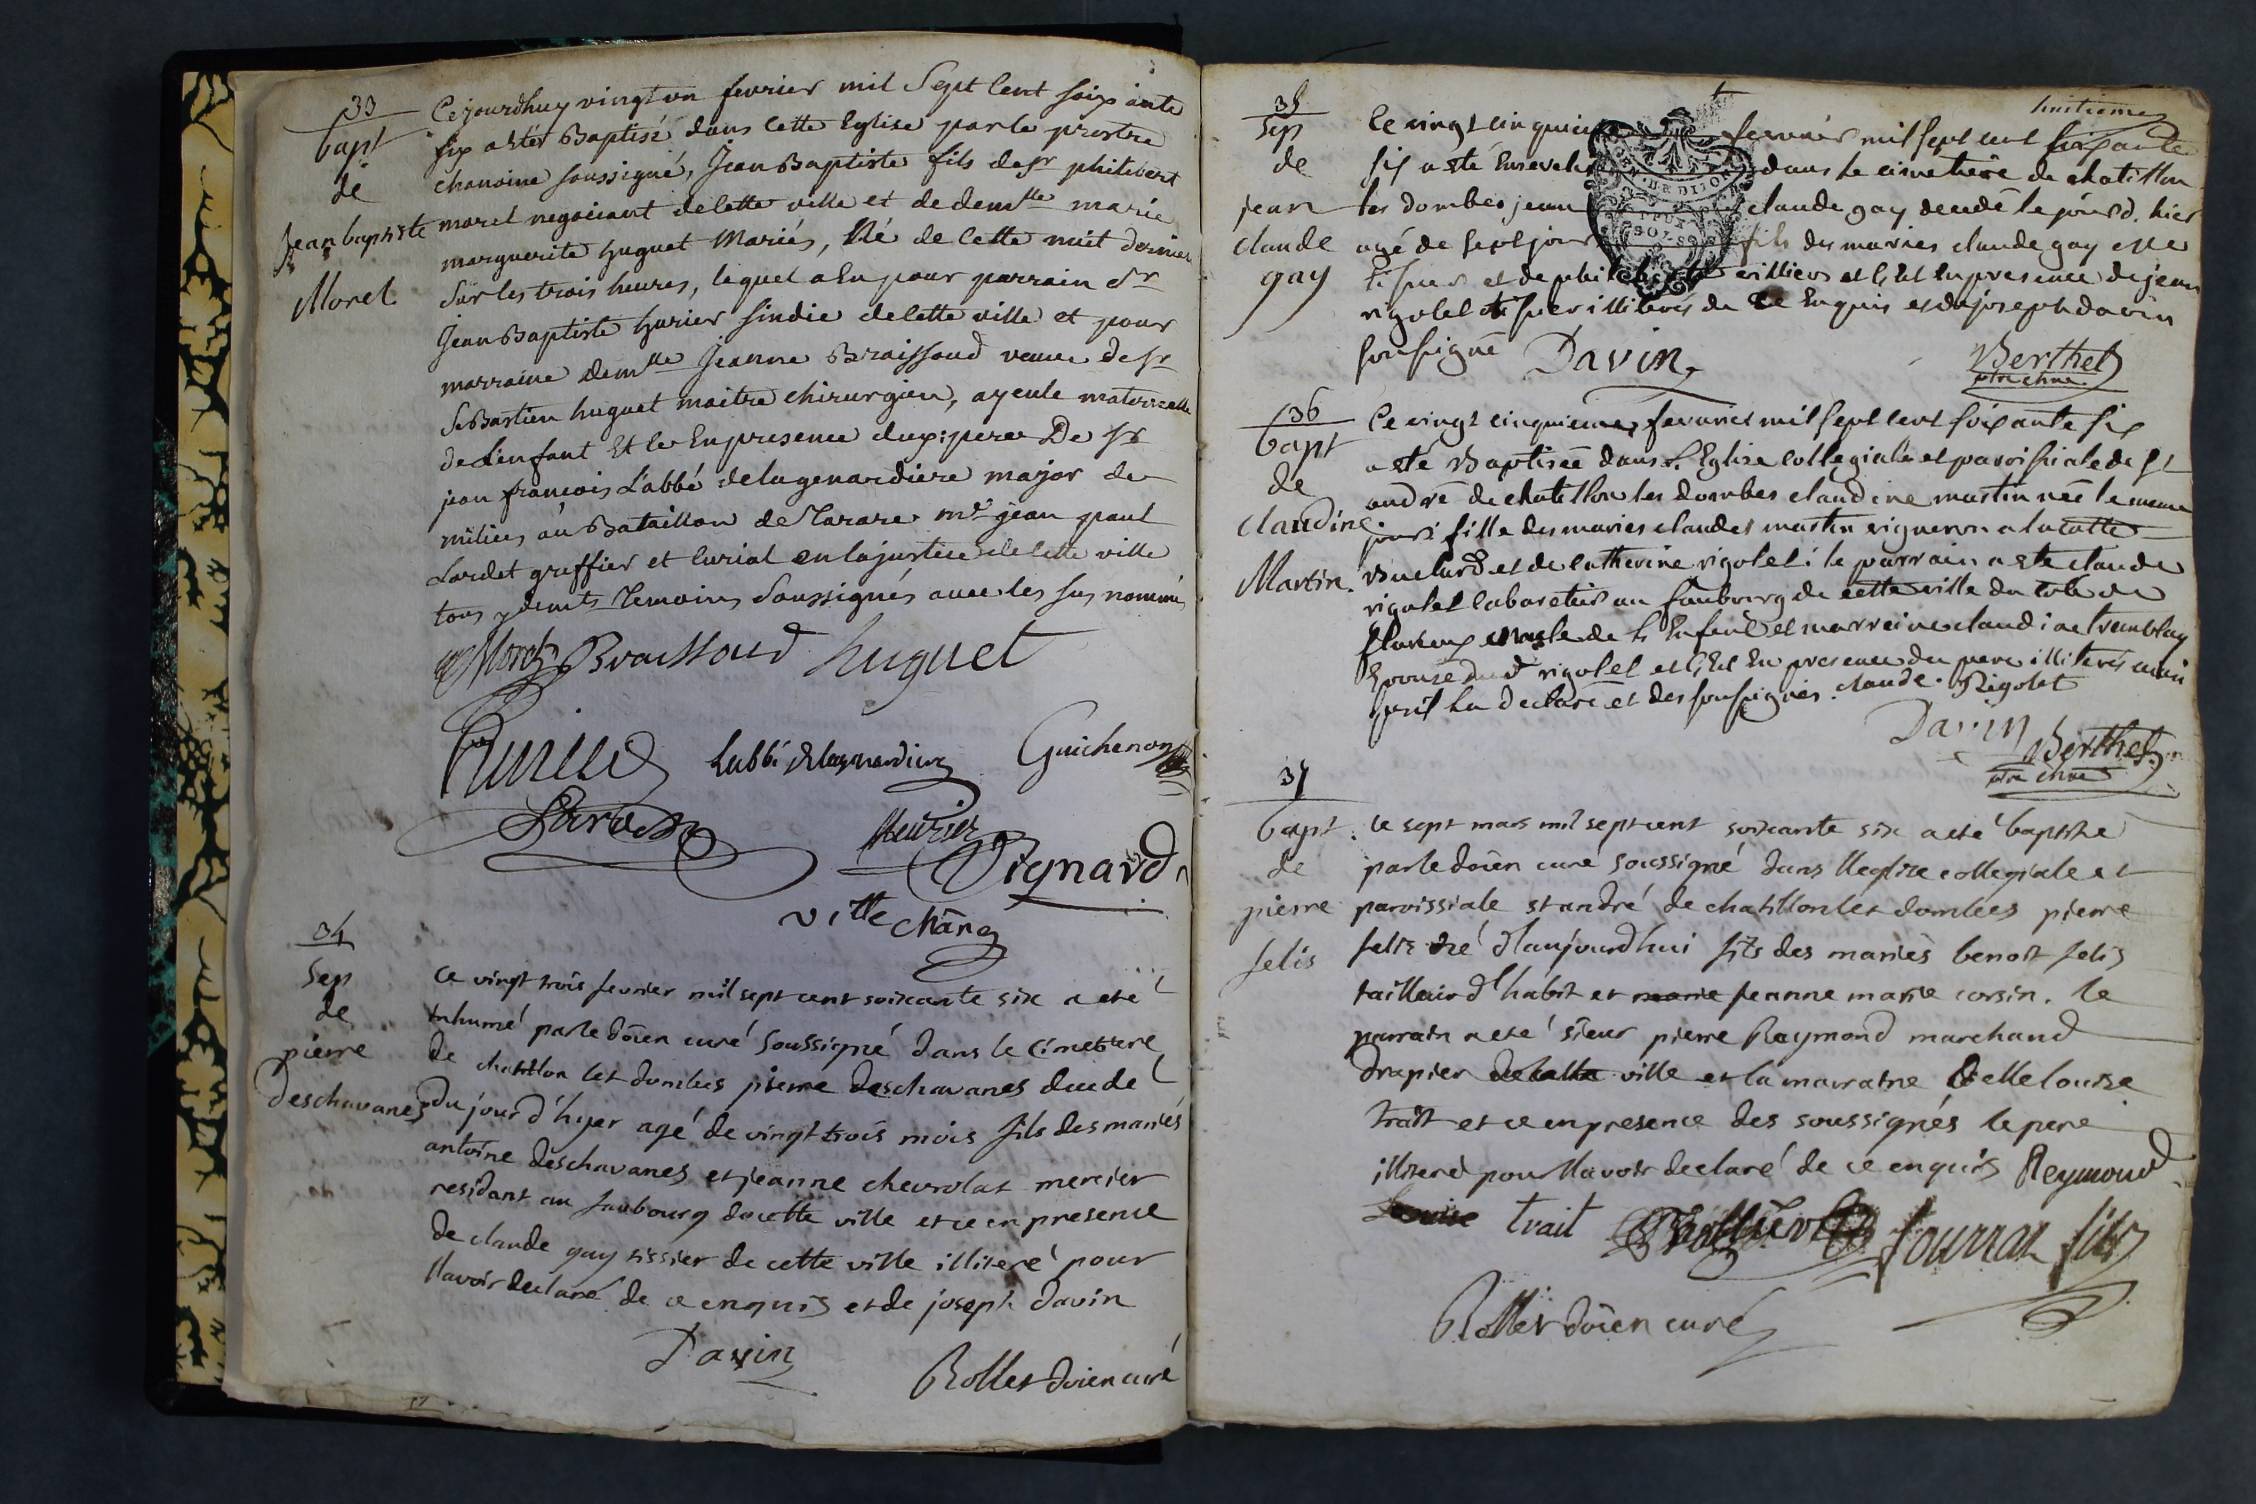 33
bapt
de
Jean baptiste
Morel
Cejourdhuy vingt un fevrier mil Sept Cent soixante
six a eter Baptisé dans Cette Eglise par le prestre
chanoine soussigné, Jean Baptiste fils de Sr philibert
morel negociant de Cette ville et de demlle marie
marguerite huguet Mariés, Né de Cette nuit derniere
Sur les trois heures, lequel a Eu pour parrain Sr
Jean Baptiste hurier sindic de Cette ville et pour
marraine demlle Jeanne Braissoud veuve de Sr
Sebastien huguet maitre chirurgien, ayeule maternelle
de L'enfant Et ce En presence du pere De Sr
jean francois L'abbé delagenardiere major de
milices au Bataillon de Tarare mr jean paul
Lardet greffier et Curial en la justice de Cette ville
tous temoins Soussignés avec les sus nommés
Morel Braissoud huguet
Labbé delagenardiere Guichenon
Heurier
Vignard
34
Sep
de
pierre
Deschavanes
Ce vingt trois fevrier mil sept cent soixante six a eté
inhumé par le doien curé soussigné dans le Cimettere
de chatillon les dombes pierre deschavanes decedé
du jour d'hyer agé de vingt trois mois fils des mariés
antoine deschavanes et jeanne chevrolat mercier
residant au faubourg de cette ville et ce en presence
de claude gay tissier de cette ville illiteré pour
l'avoir declaré de ce enquis et de joseph davin
Davin Rollet doien curé
huitieme
35
Sep
de
jean
claude
gay
Ce vingt cinquieme fevrier mil sept cent soixante
six a eté Enseveli dans le cimetiere de chatillon
les dombes jean claude gay decedé le jourd. hier
agé de sept jours fils des maries claude gay
et de philiberte villier et ce En presence de jean
rigolet illiterés de ce Enquis et de joseph davin
soussigné Davin Berthet
ptre chne
36
bapt
de
claudine
Martin
Ce vingt cinquieme fevrier mil sept cent soixante six
a eté Baptiseé dans L'Eglise Collegiale et paroissiale de St
andré de chatillon les dombes claudine martin neé le meme
jour fille des maries claude martin vigneron a la
et de catherine rigolet: le parrain a ete claude
rigolet Cabaretier au faubourg de cette ville du coté de
de L'Enfent et marreine claudine tremblay
Epouse dud rigolet et ce En presence du pere illiteré
quil La declaré et des soussignés. claude. Rigolet
Davin Berthet
ptre chne
37
bapt
de
pierre
felis
le sept mars mil sept cent soixante six a eté baptisé
par le doien curé soussigné dans l'leglise collegiale et
paroissiale st andré de chatillon les dombes pierre
felis né d'aujourd'hui fils des mariés benoit felis
tailleur d'habit et marie jeanne marie corsin. le
parrain a eté sieur pierre Raymond marchand
drapier de cette ville et la marraine delle louise
trait et ce en presence des soussignés le pere
illiteré pour l'avoir declaré de ce enquis Reymond
Louise trait fournat fils
Rollet doien curé